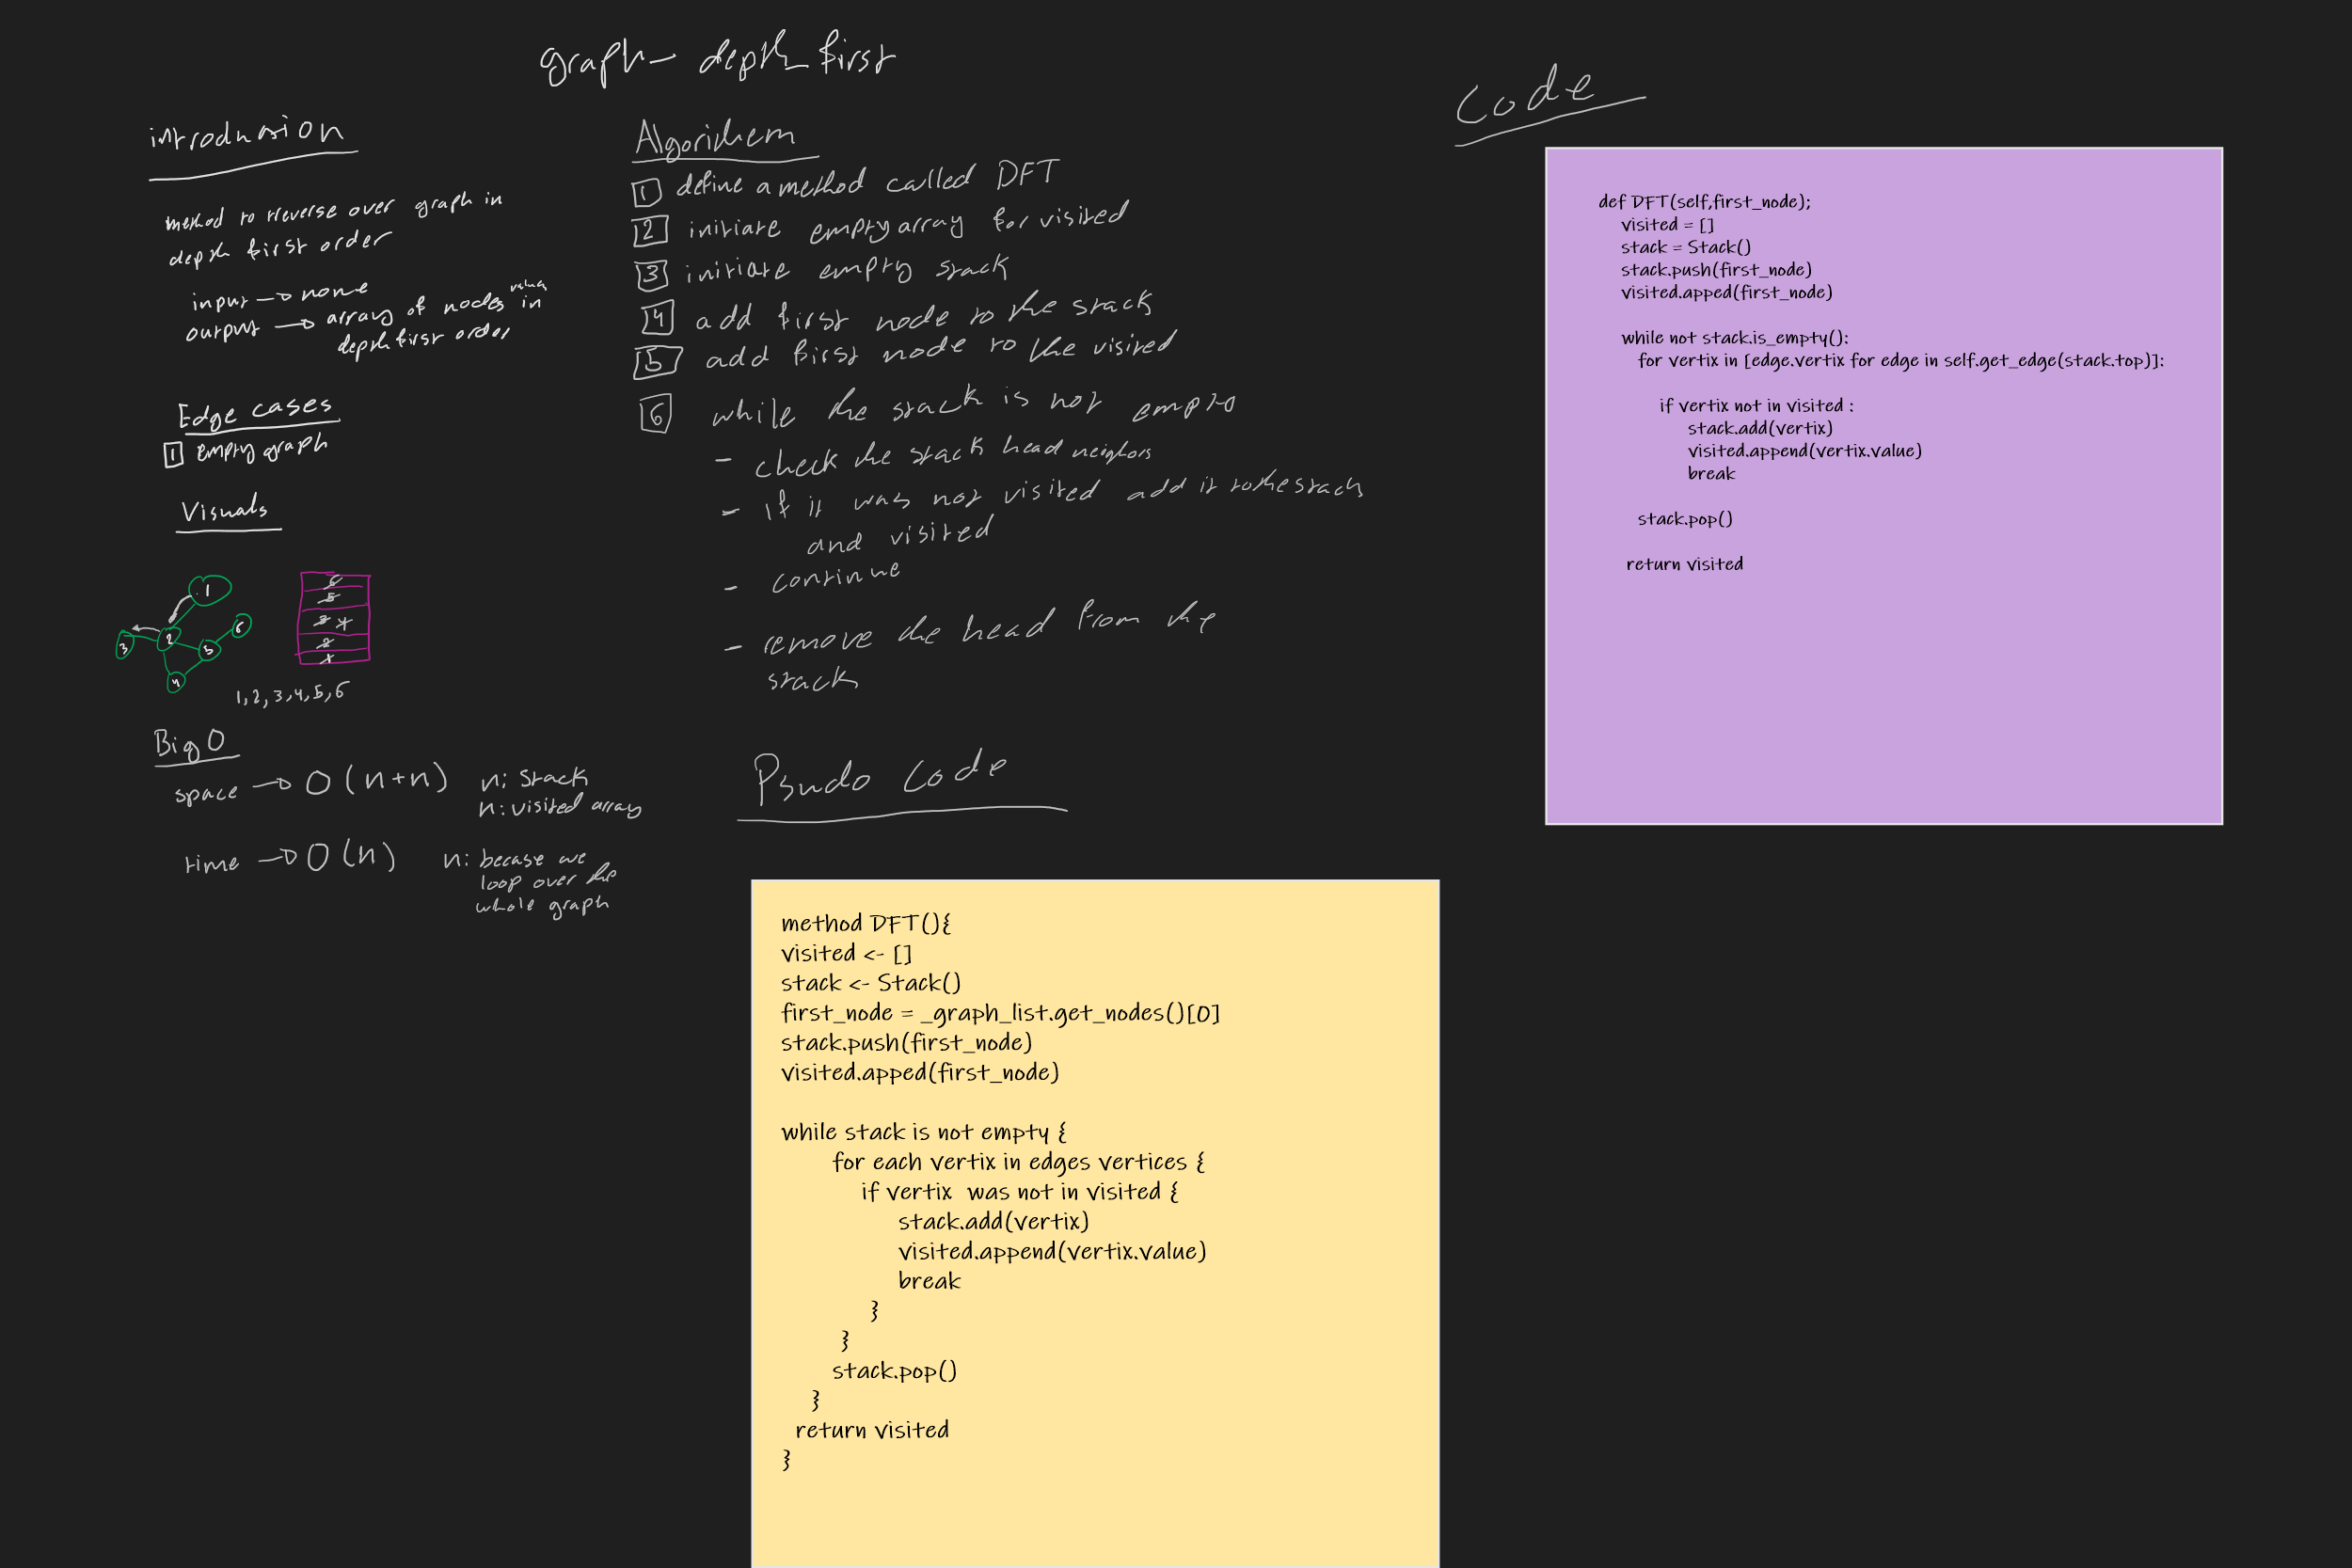 graph- depth first
introduasion
method to treverse over graph in
depth first order
input -> none
output -> array of nodes values in
depth first order
Edge cases
1 empty graph
Visuals
1
2
3
4
5
6
6
5
3 4
2
1
1,2,3,4,5,6
Big O
space -> O (n+n) n: Stack
n: visited array
time -> O (n) n: becase we
loop over the
whole graph
Algorithem
1 define a method called DFT
2 initiate empty array for visited
3 initiate empty stack
4 add first node to the stack
5 add first node to the visited
6 while the stack is not empty
- check the stack head neighors
- if it was not visited add it to the stack
and visited
- continue
- remove the head from the
stack
Psudo Code
method DFT(){
visited <- []
stack <- Stack()
first_node = _graph_list.get_nodes()[0]
stack.push(first_node)
visited.apped(first_node)
while stack is not empty {
for each vertix in edges vertices {
if vertix was not in visited {
stack.add(vertix)
visited.append(vertix.value)
break
}
}
stack.pop()
}
return visited
}
Code
def DFT(self,first_node);
visited = []
stack = Stack()
stack.push(first_node)
visited.apped(first_node)
while not stack.is_empty():
for vertix in [edge.vertix for edge in self.get_edge(stack.top)]:
if vertix not in visited :
stack.add(vertix)
visited.append(vertix.value)
break
stack.pop()
return visited